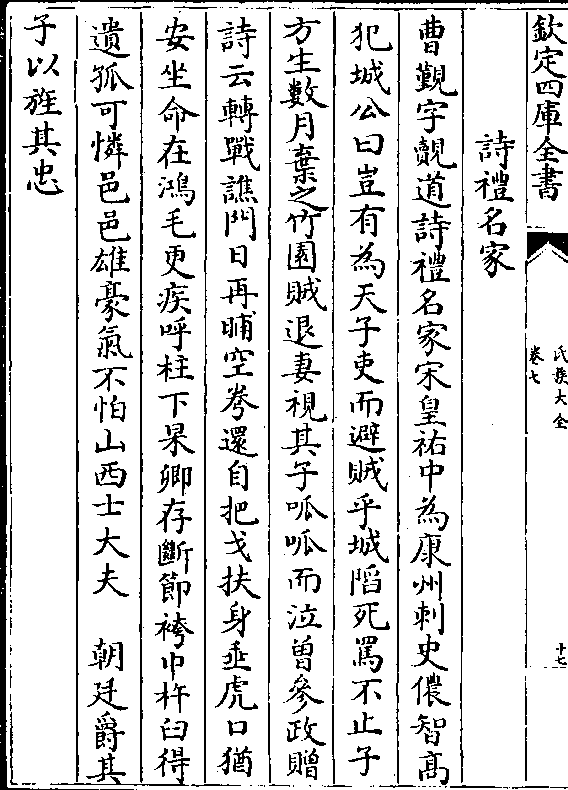 欽定四庫全書
氏族大全
卷七
十七
詩禮名家
曹覲字覿道詩禮名家宋皇祐中為康州刺史儂智高
犯城公曰豈有為天子吏而避賊乎城陷死罵不止子
方生數月棄之竹園賊退妻視其子呱呱而泣曽參政贈
詩云轉戰譙門日再晡空弮還自把戈扶身垂虎口猶
安坐命在鴻毛更疾呼柱下杲卿存斷節袴中杵臼得
遺孤可憐邑邑雄豪氣不怕山西士大夫　朝廷爵其
子以旌其忠